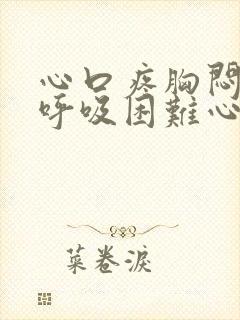 心口疼胸悶
呼吸困難心
菜卷淚